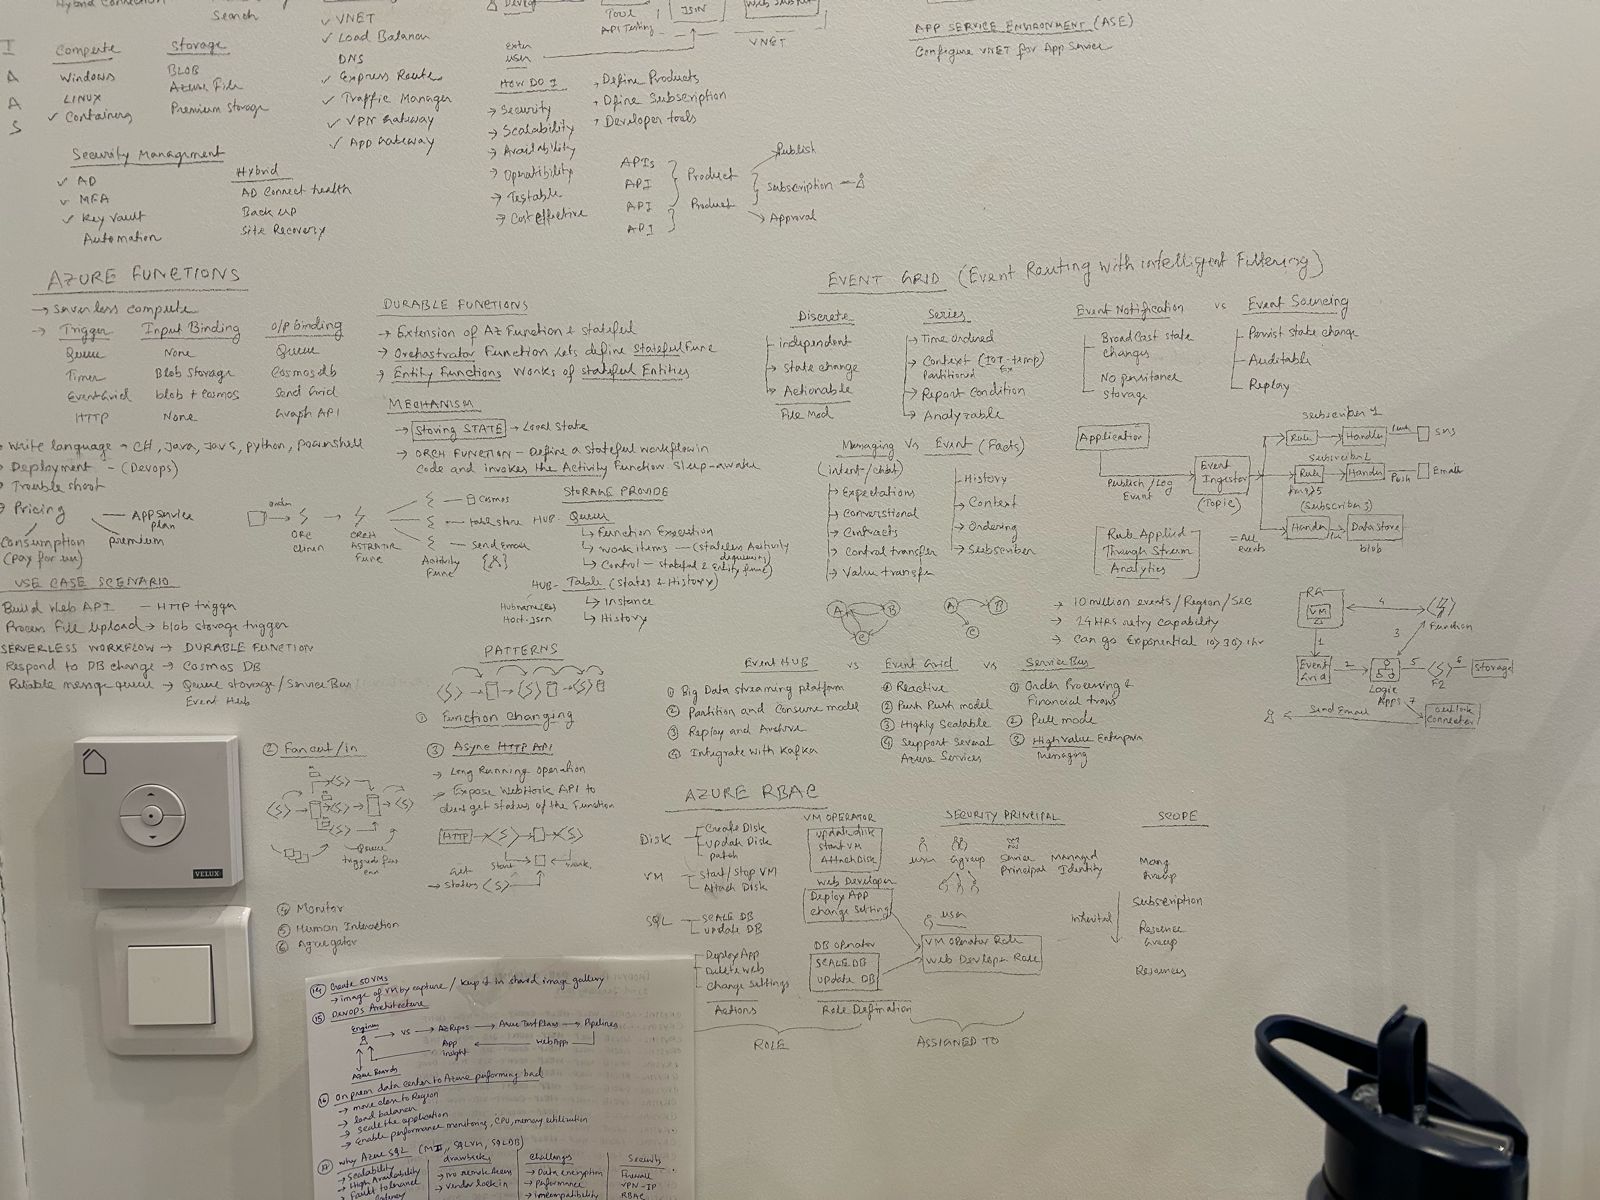 Search
I
A
A
S
Compute
Windows
LINUX
✓ Containers
Storage
BLOB
Azure File
Premium Storage
✓ VNET
✓ Load Balancer
DNS
✓ Express Route
✓ Traffic Manager
✓ VPN Gateway
✓ App Gateway
Security Management
✓ AD
✓ MFA
✓ Key Vault
Automation
Hybrid
AD Connect health
Back up
Site Recovery
Tool
API Testing
JSIN
VNET
user
HOW DO I
→ Security
→ Scalability
→ Availability
→ Operatibility
→ Testable
→ Cost effective
Define Products
Dfine Subscription
Developer tools
APIs
API
API
API
Product
Product
Publish
Subscription
Approval
APP SERVICE ENVIRONMENT (ASE)
Configure VNET for App Service
AZURE FUNCTIONS
→ Serverless compute
→ Trigger Input Binding O/P binding
Queue None Queue
Timer Blob Storage Cosmosdb
EventGrid blob + Cosmos Send Grid
HTTP None Graph API
Deployment - (Devops)
Trouble shoot
Pricing
App Service plan
premium
Consumption
USE CASE SCENARIO
Build Web API — HTTP trigger
Process File Upload → blob storage trigger
SERVERLESS WORKFLOW → DURABLE FUNCTION
Respond to DB change → Cosmos DB
Reliable message queue → Queue storage/Service Bus/
Event Hub
DURABLE FUNCTIONS
→ Extension of Az Function & stateful
→ Orchastrator Function lets define Stateful Func
→ Entity Functions Works of stateful Entities
MECHANISM
→ Storing STATE → Local State
→ ORCH FUNCTION - Define a stateful workflow in
code and invokes the Activity Function Sleep-awake
Cosmos
Send Email
Activity
Func
STORAGE PROVIDE
HUB- Queue
↳ Function Execution
↳ Work items — (stateless Activity
↳ Control - stateful & Entity func)
HUB- Table (States & History)
↳ Instance
↳ History
Host.json
PATTERNS
① Function Changing
② Fan out/in
③ Async HTTP API
→ Long Running operation
→ Expose WebHook API to
client get status of the Function
HTTP
Start
Get
→ Status
④ Monitor
⑤ Human Interaction
⑥ Agregator
EVENT GRID (Event Routing with intelligent Filtering)
Discrete
independent
State change
Actionable
Series
Time ordered
Context (IOT-temp)
Partitioned
Report Condition
Analyzable
Event Notification vs Event Sourcing
Broad Cast state
changes
storage
Persist state change
Auditable
Replay
vs Event (Facts)
Expectations
Contracts
Control transfer
Value transfer
History
Context
Ordering
Subscriber
Application
Publish / Log
Event
Event
Ingestor
(Topic)
Subscriber 1
Rule
Handler
SMS
Rule
Handler
Push
Email
(Subscriber 3)
Handler
Data Store
blob
= All
events
Rule Applied
Through Stream
Analytics
A
B
C
A
B
C
→ 10 million events/Region/Sec
→ 24 HRS retry capability
→ Can go Exponential 10>30>1hr
RG
VM
1
4
Function
3
Event
Grid
2
Logic
Apps
5
F2
6
Storage
7
Send Email
Outlook
Connector
Event HUB vs Event Grid vs Service Bus
① Big Data streaming platform
② Partition and Consume model
③ Replay and Archive
④ Integrate with Kafka
① Reactive
② Push Push model
③ Highly Scalable
④ Support Several
Azure Services
① Order Processing &
Financial trans
② Pull mode
③ High value Enterprise
AZURE RBAC
Disk
Create Disk
Update Disk
Patch
VM
Start/Stop VM
Attach Disk
SQL
SCALE DB
update DB
Deploy App
Delete web
Change Settings
Actions
VM OPERATOR
update disk
start VM
Attach Disk
Web Developer
Deploy App
change Setting
DB Operator
SCALE DB
update DB
Role Defination
ROLE
SECURITY PRINCIPAL
user Group Service
Principal Managed
Identity
user
VM Operator Role
Web Developer Role
ASSIGNED TO
SCOPE
Mang
Group
Subscription
Resource
Group
Resources
inherited
VELUX
⑭ Create 50 VMs
→ image of VM by capture / keep it in shared image gallery
⑮ DevOps Architecture
Engineer
→ VS → AzRepos → Azure Test Plans → Pipelines
App
insight
Web Apps
Azure Boards
⑯ On prem data center to Azure performing bad
→ move close to Region
→ load balancer
→ Scale the application
→ Enable performance monitoring, CPU, memory utilization
⑰ Why Azure SQL (MI, SQLVM, SQLDB)
→ Scalability
→ High Availability
→ Fault tolerant
drawback
→ Vendor lock in
Challenges
→ Data encryption
→ Performance
→ incompatibility
Security
Firewall
VPN-IP
RBAC